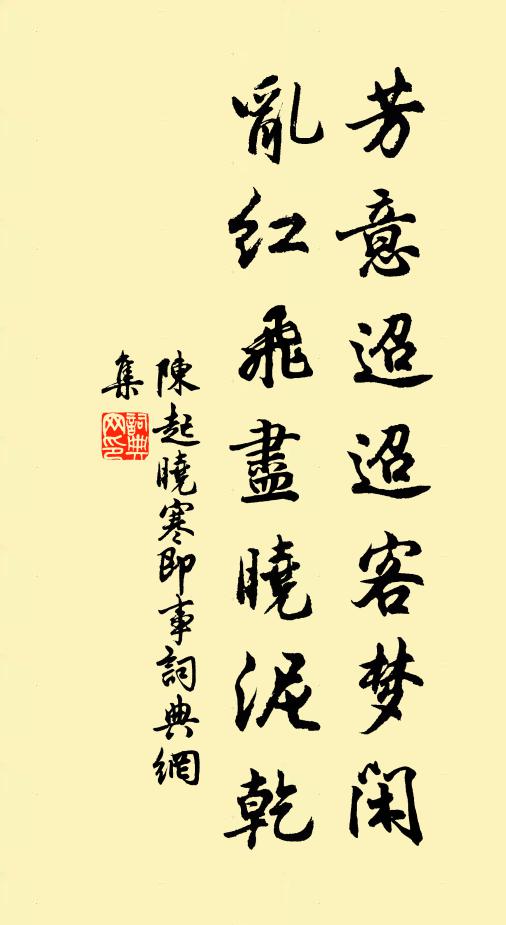 芳意迢迢客梦闲
亂红飛盡曉泥乾
陳起曉寒即事詞典網
集
詞典
网印